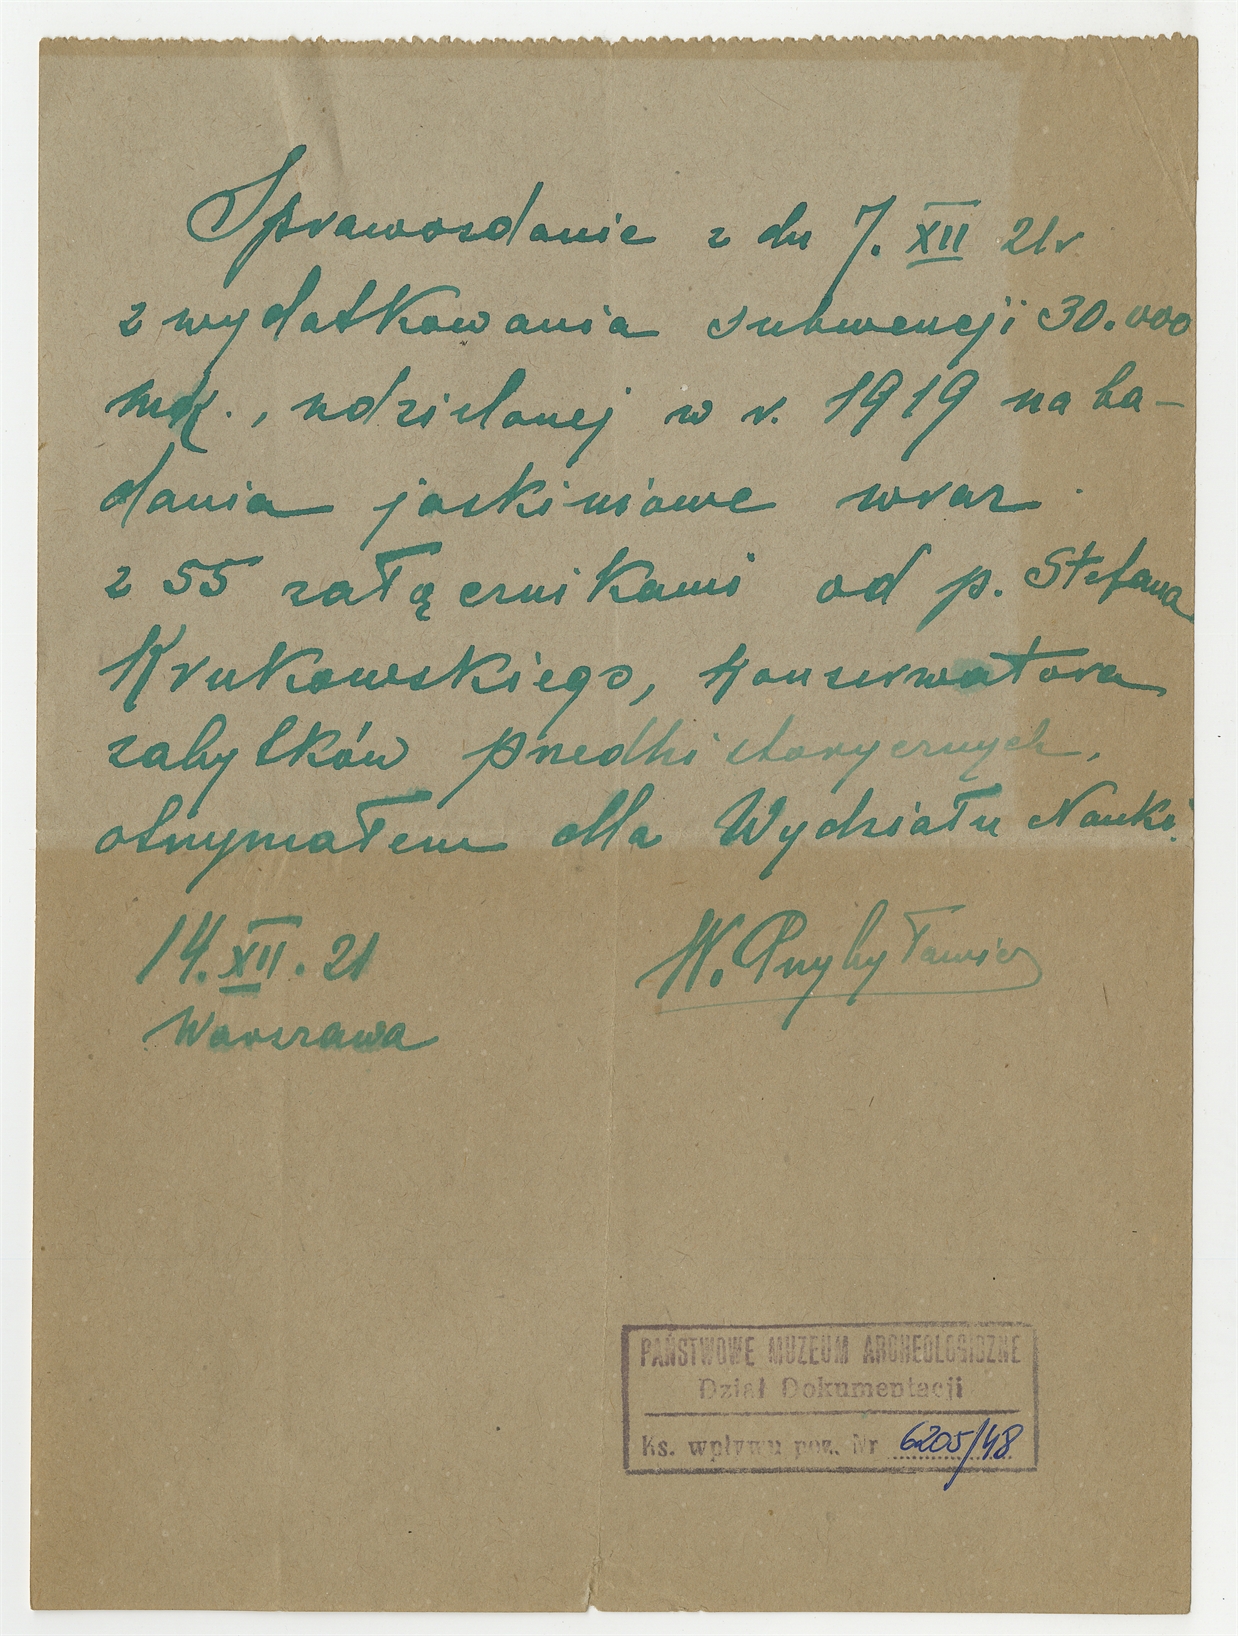 Sprawozdanie z dn 7. XII 21 r
z wydatkowania subwencji 30.000
mk., udzielonej w r. 1919 na ba-
dania jaskiniowe wraz
z 55 załącznikami od p. Stefana
Krukowskiego, konserwatora
zabytków przedhistorycznych,
otrzymałem dla Wydziału Nauki.
14. XII. 21
W. Przybyłowicz
Warszawa
PAŃSTWOWE MUZEUM ARCHEOLOGICZNE
Dział Dokumentacji
Ks. wpływu poz. Nr 6205/48